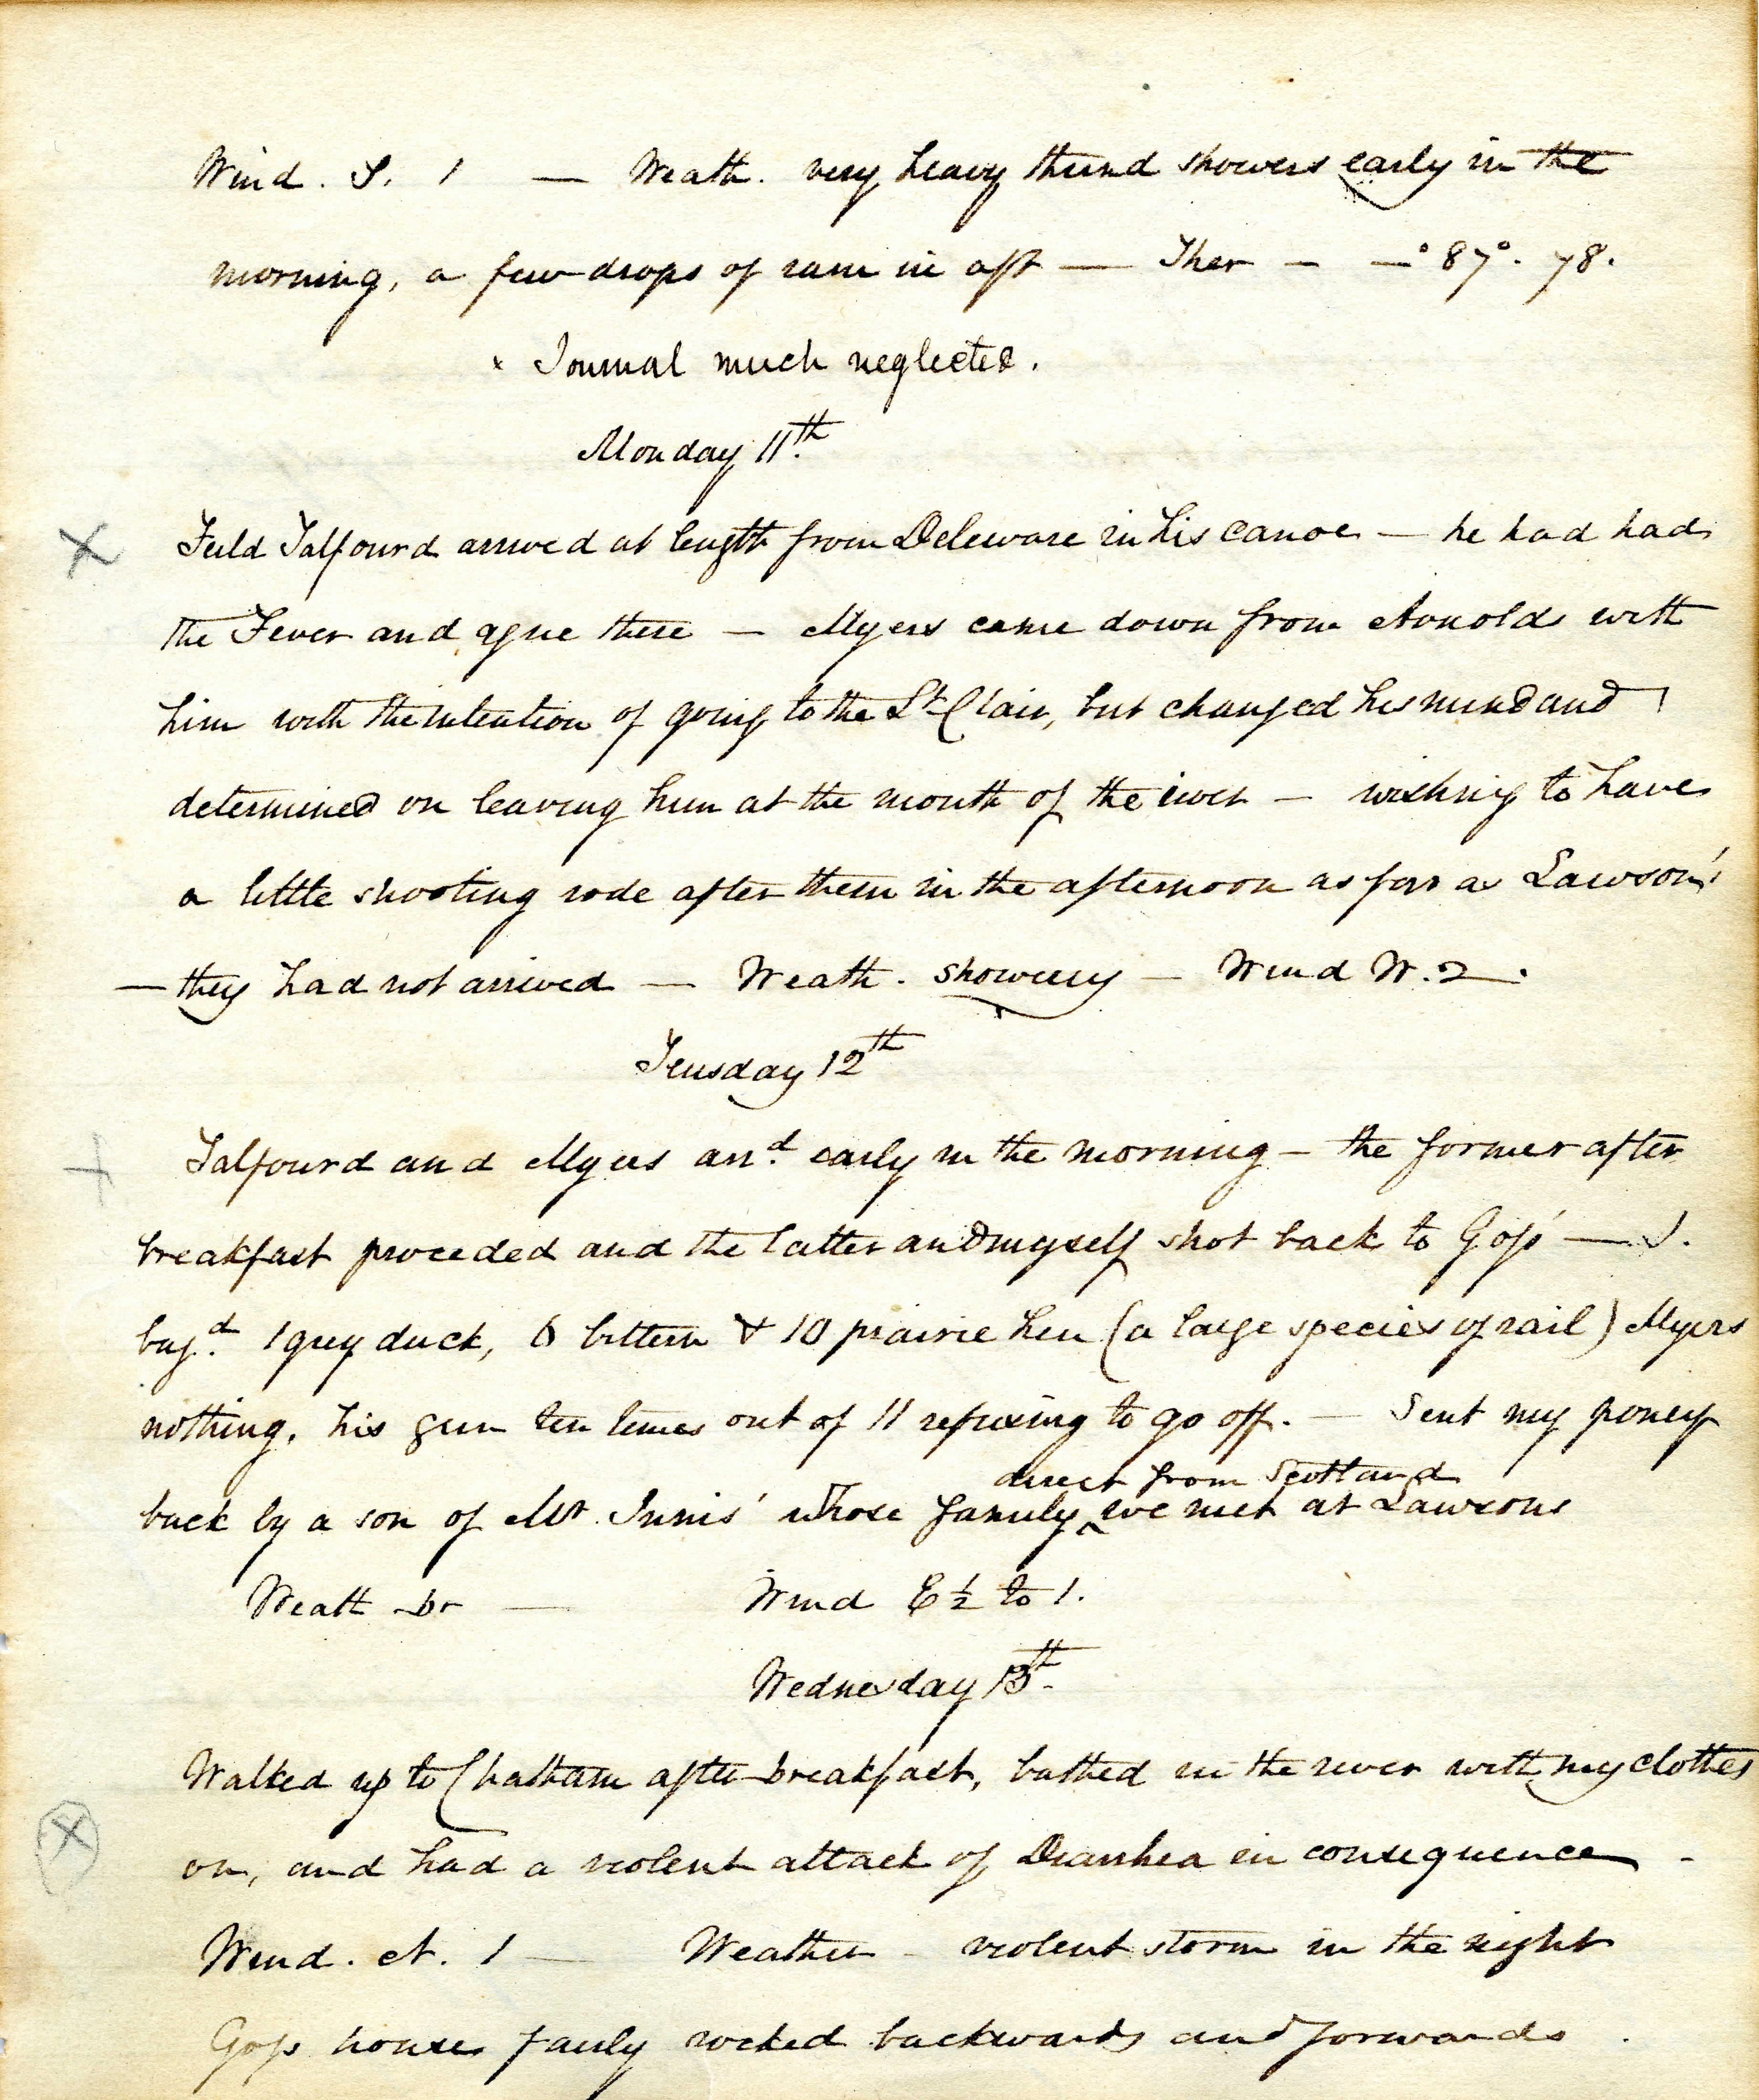 Wind. S. 1 — Weath. very heavy thund showers early in the
morning, a few drops of rain in aft — Ther — —° 87°. 78.
× Journal much neglected.
Monday 11th
Feild Talfourd arrived at length from Deleware in his canoe — he had had
the Fever and ague there — Myers came down from Arnolds with
him with the intention of going to the St Clair, but changed his mind and
determined on leaving him at the mouth of the river — wishing to have
a little shooting rode after them in the afternoon as far as Lawson's
— they had not arrived — Weath. showery — Wind W. 2.
Teusday 12th
Talfourd and Myers arrd. early in the morning — the former after
breakfast proceded and the latter and myself shot back to Goss' — I.
bagd. 1 grey duck, 6 bittern & 10 prairie hen (a large species of rail) Myers
nothing, his gun ten times out of 11 refusing to go off. — Sent my poney
direct from Scotland
back by a son of Mr. Innis' whose family ^ we met at Lawsons
Weath br — Wind E ½ to 1.
Wednesday 13th.
Walked up to Chatham after breakfast, bathed in the river with my clothes
on, and had a violent attack of Diarrhea in consequence -
Wind. N. 1 — Weather - violent storm in the night
Goss house fairly rocked backwards and forwards .